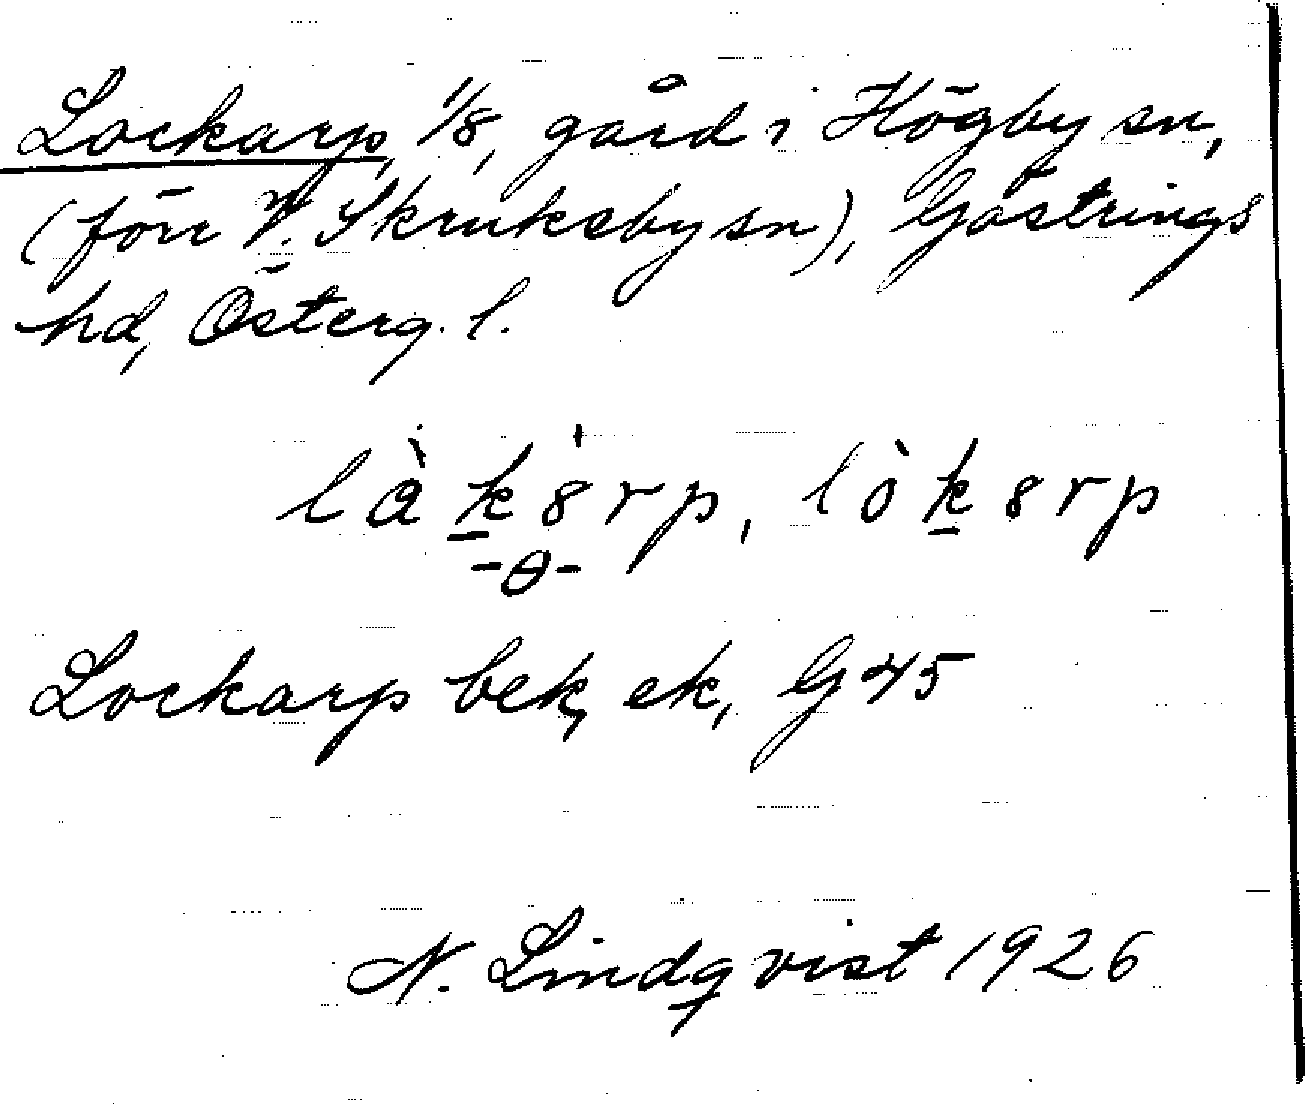 Lockarp, 1/8, gård i Högby sn,
(förr V. Skruksby sn), Göstrings
hd, Österg. l.
là̀kərp, lòkərp
-θ-
Lockarp bek, ek, G 45
N. Lindqvist 1926